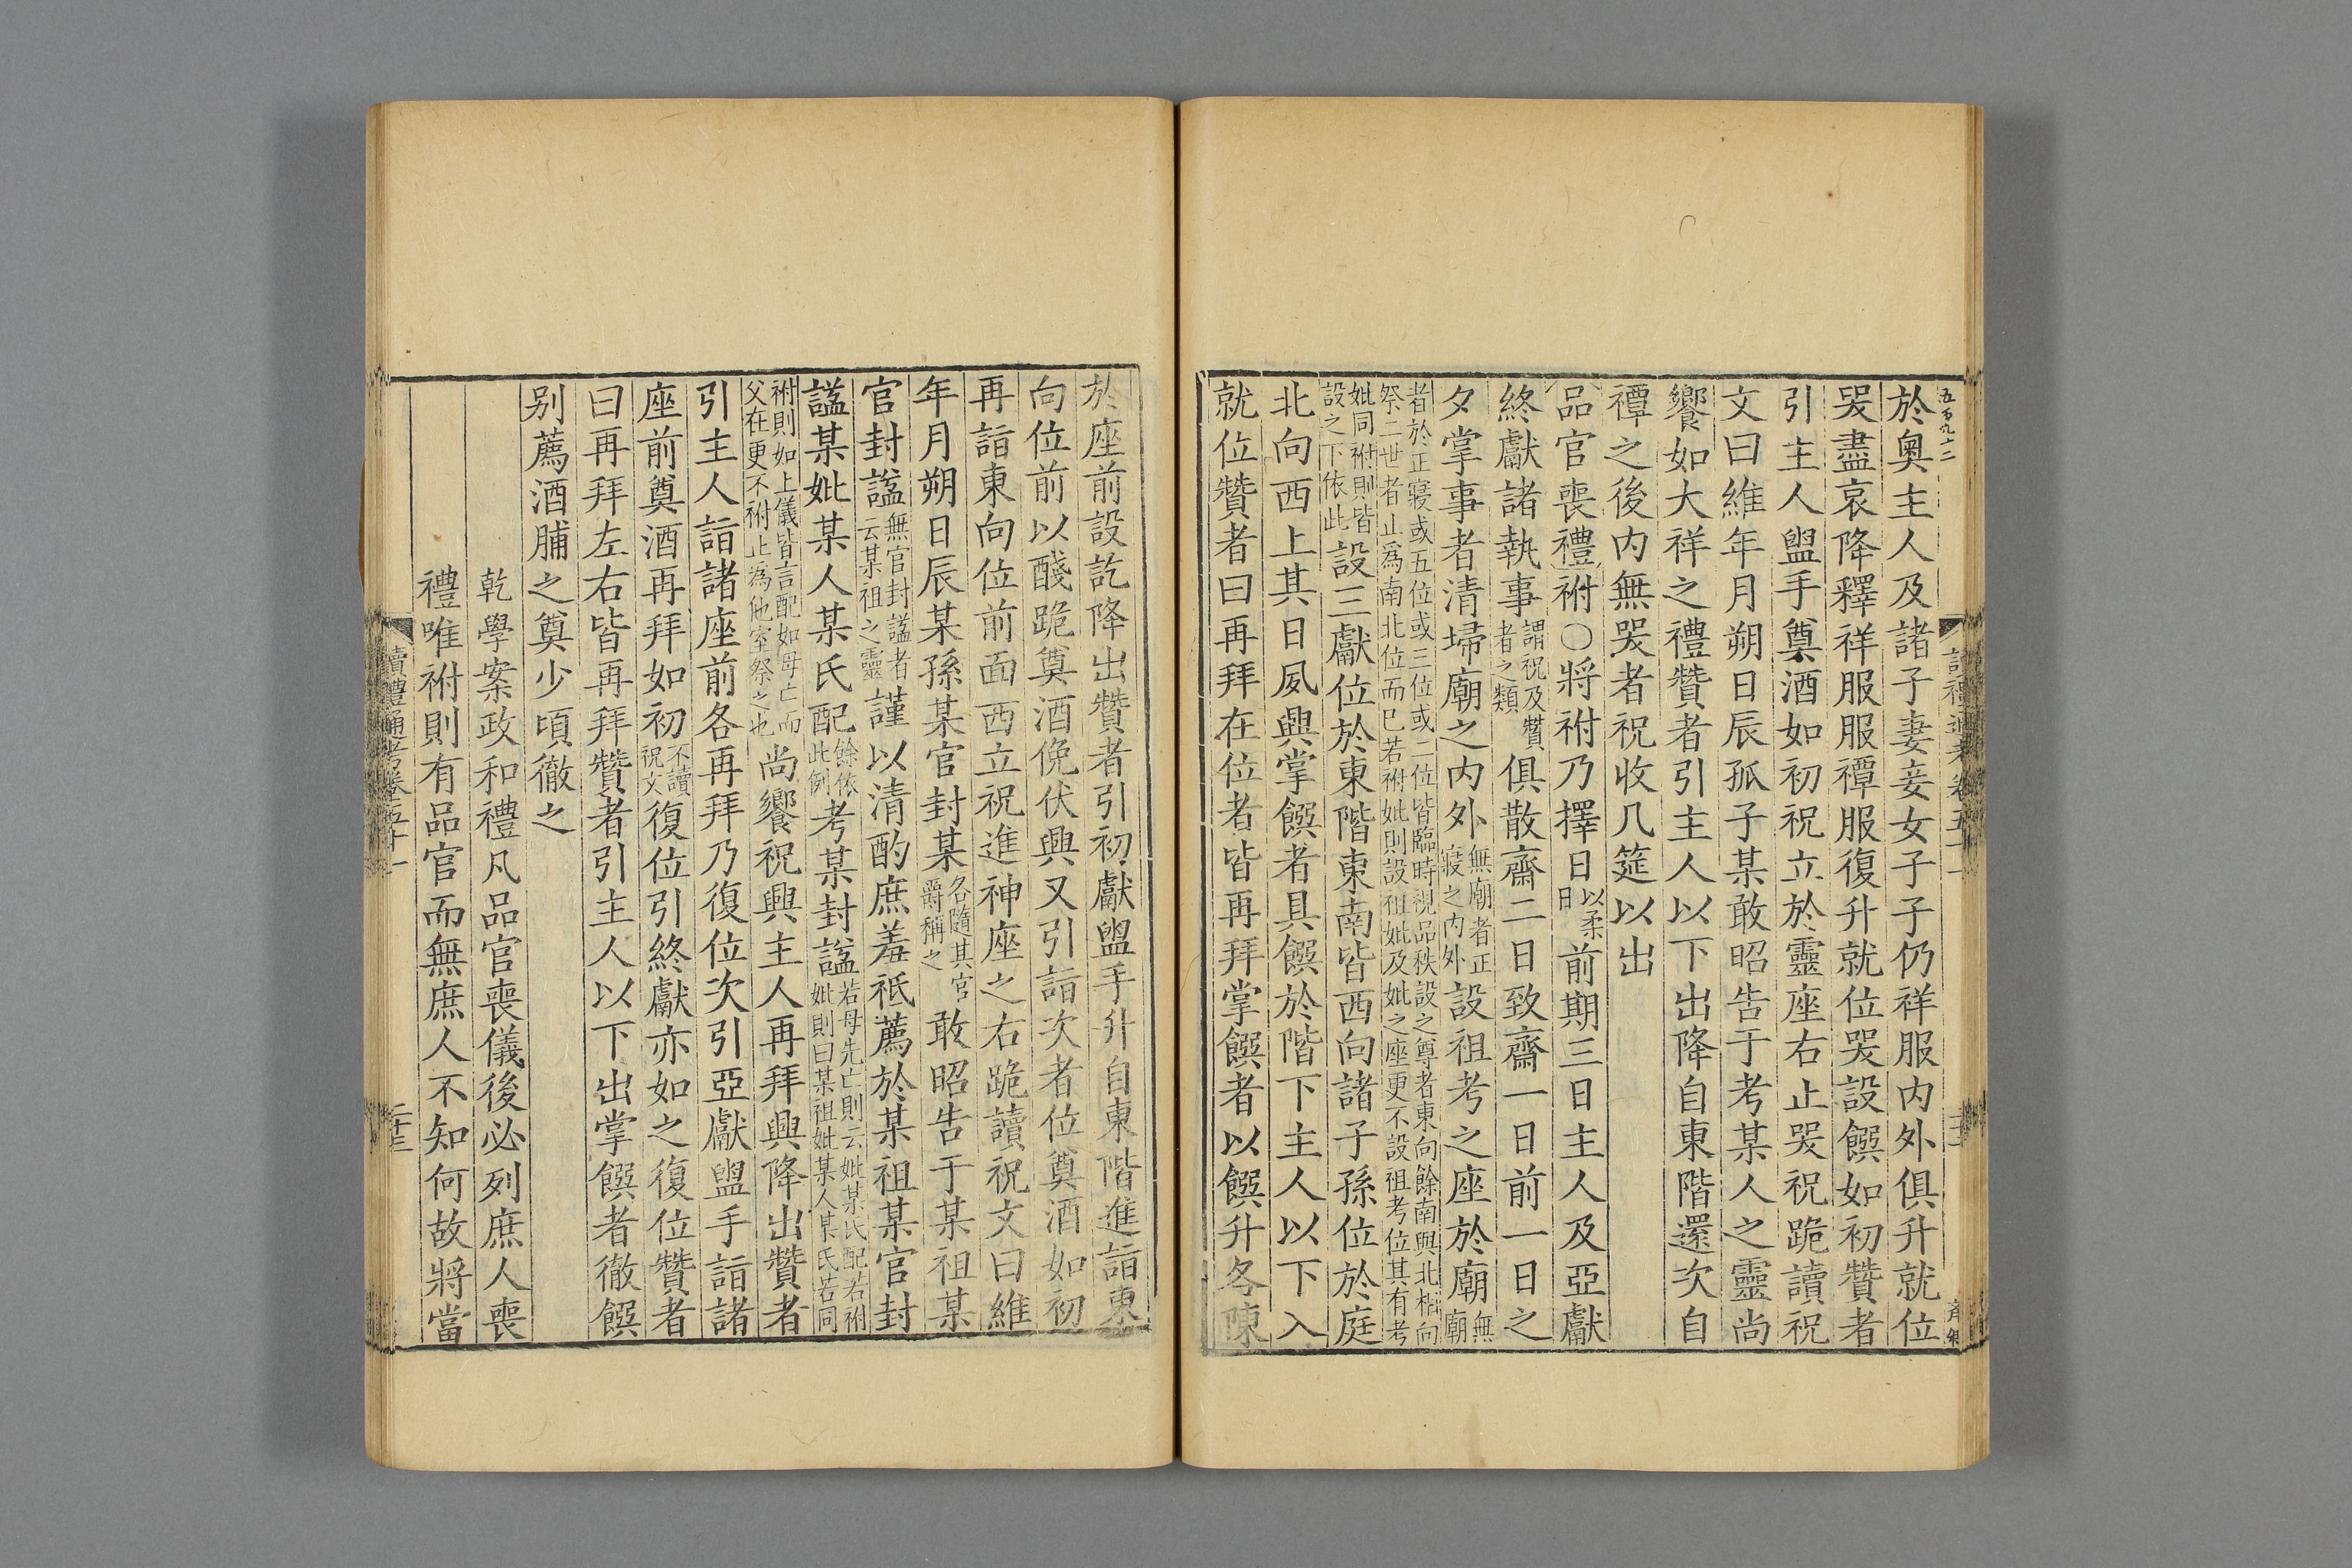 五百九十二
於奧主人及諸子妻妾女子子仍祥服内外俱升就位
哭盡哀降釋祥服服禫服復升就位哭設饌如初贊者
引主人盥手奠酒如初祝立於靈座右止哭祝跪讀祝
文曰維年月朔日辰孤子某敢昭告于考某人之靈尚
饗如大祥之禮贊者引主人以下出降自東階還次自
禫之後内無哭者祝收几筵以出
品官喪禮祔〇將祔乃擇日以柔日前期三日主人及亞獻
終獻諸執事謂祝及贊者之類俱散齋二日致齋一日前一日之
夕掌事者清埽廟之内外無廟者正寢之内外設祖考之座於廟無廟
者於正寢或五位或三位或二位皆臨時視品秩設之尊者東向餘南與北相向
祭二世者止為南北位而已若祔妣則設祖妣及妣之座更不設祖考位其有考
妣同祔則皆設之下依此設三獻位於東階東南皆西向諸子孫位於庭
北向西上其日夙興掌饌者具饌於階下主人以下入
就位贊者曰再拜在位者皆再拜掌饌者以饌升各陳
於座前設訖降出贊者引初獻盥手升自東階進詣東
向位前以醆跪奠酒俛伏興又引詣次者位奠酒如初
再詣東向位前面西立祝進神座之右跪讀祝文曰維
年月朔日辰某孫某官封某各隨其官爵稱之敢昭告于某祖某
官封諡無官封諡者云某祖之靈謹以清酌庶羞祗薦於某祖某官封
諡某妣某人某氏配餘依此例考某封諡若母先亡則云妣某氏配若祔妣則曰某祖妣某人某氏若同
祔則如上儀皆言配如母亡而父在更不祔止為他室祭之也尚饗祝興主人再拜興降出贊者
引主人詣諸座前各再拜乃復位次引亞獻盥手詣諸
座前奠酒再拜如初不讀祝文復位引終獻亦如之復位贊者
曰再拜左右皆再拜贊者引主人以下出掌饌者徹饌
别薦酒脯之奠少頃徹之
乾學案政和禮凡品官喪儀後必列庶人喪
禮唯祔則有品官而無庶人不知何故將當
讀禮通考卷五十一
二十三